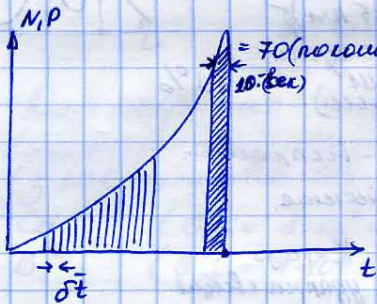 N,P
= 70(покол
10⁻ (сек)
t
δt̄